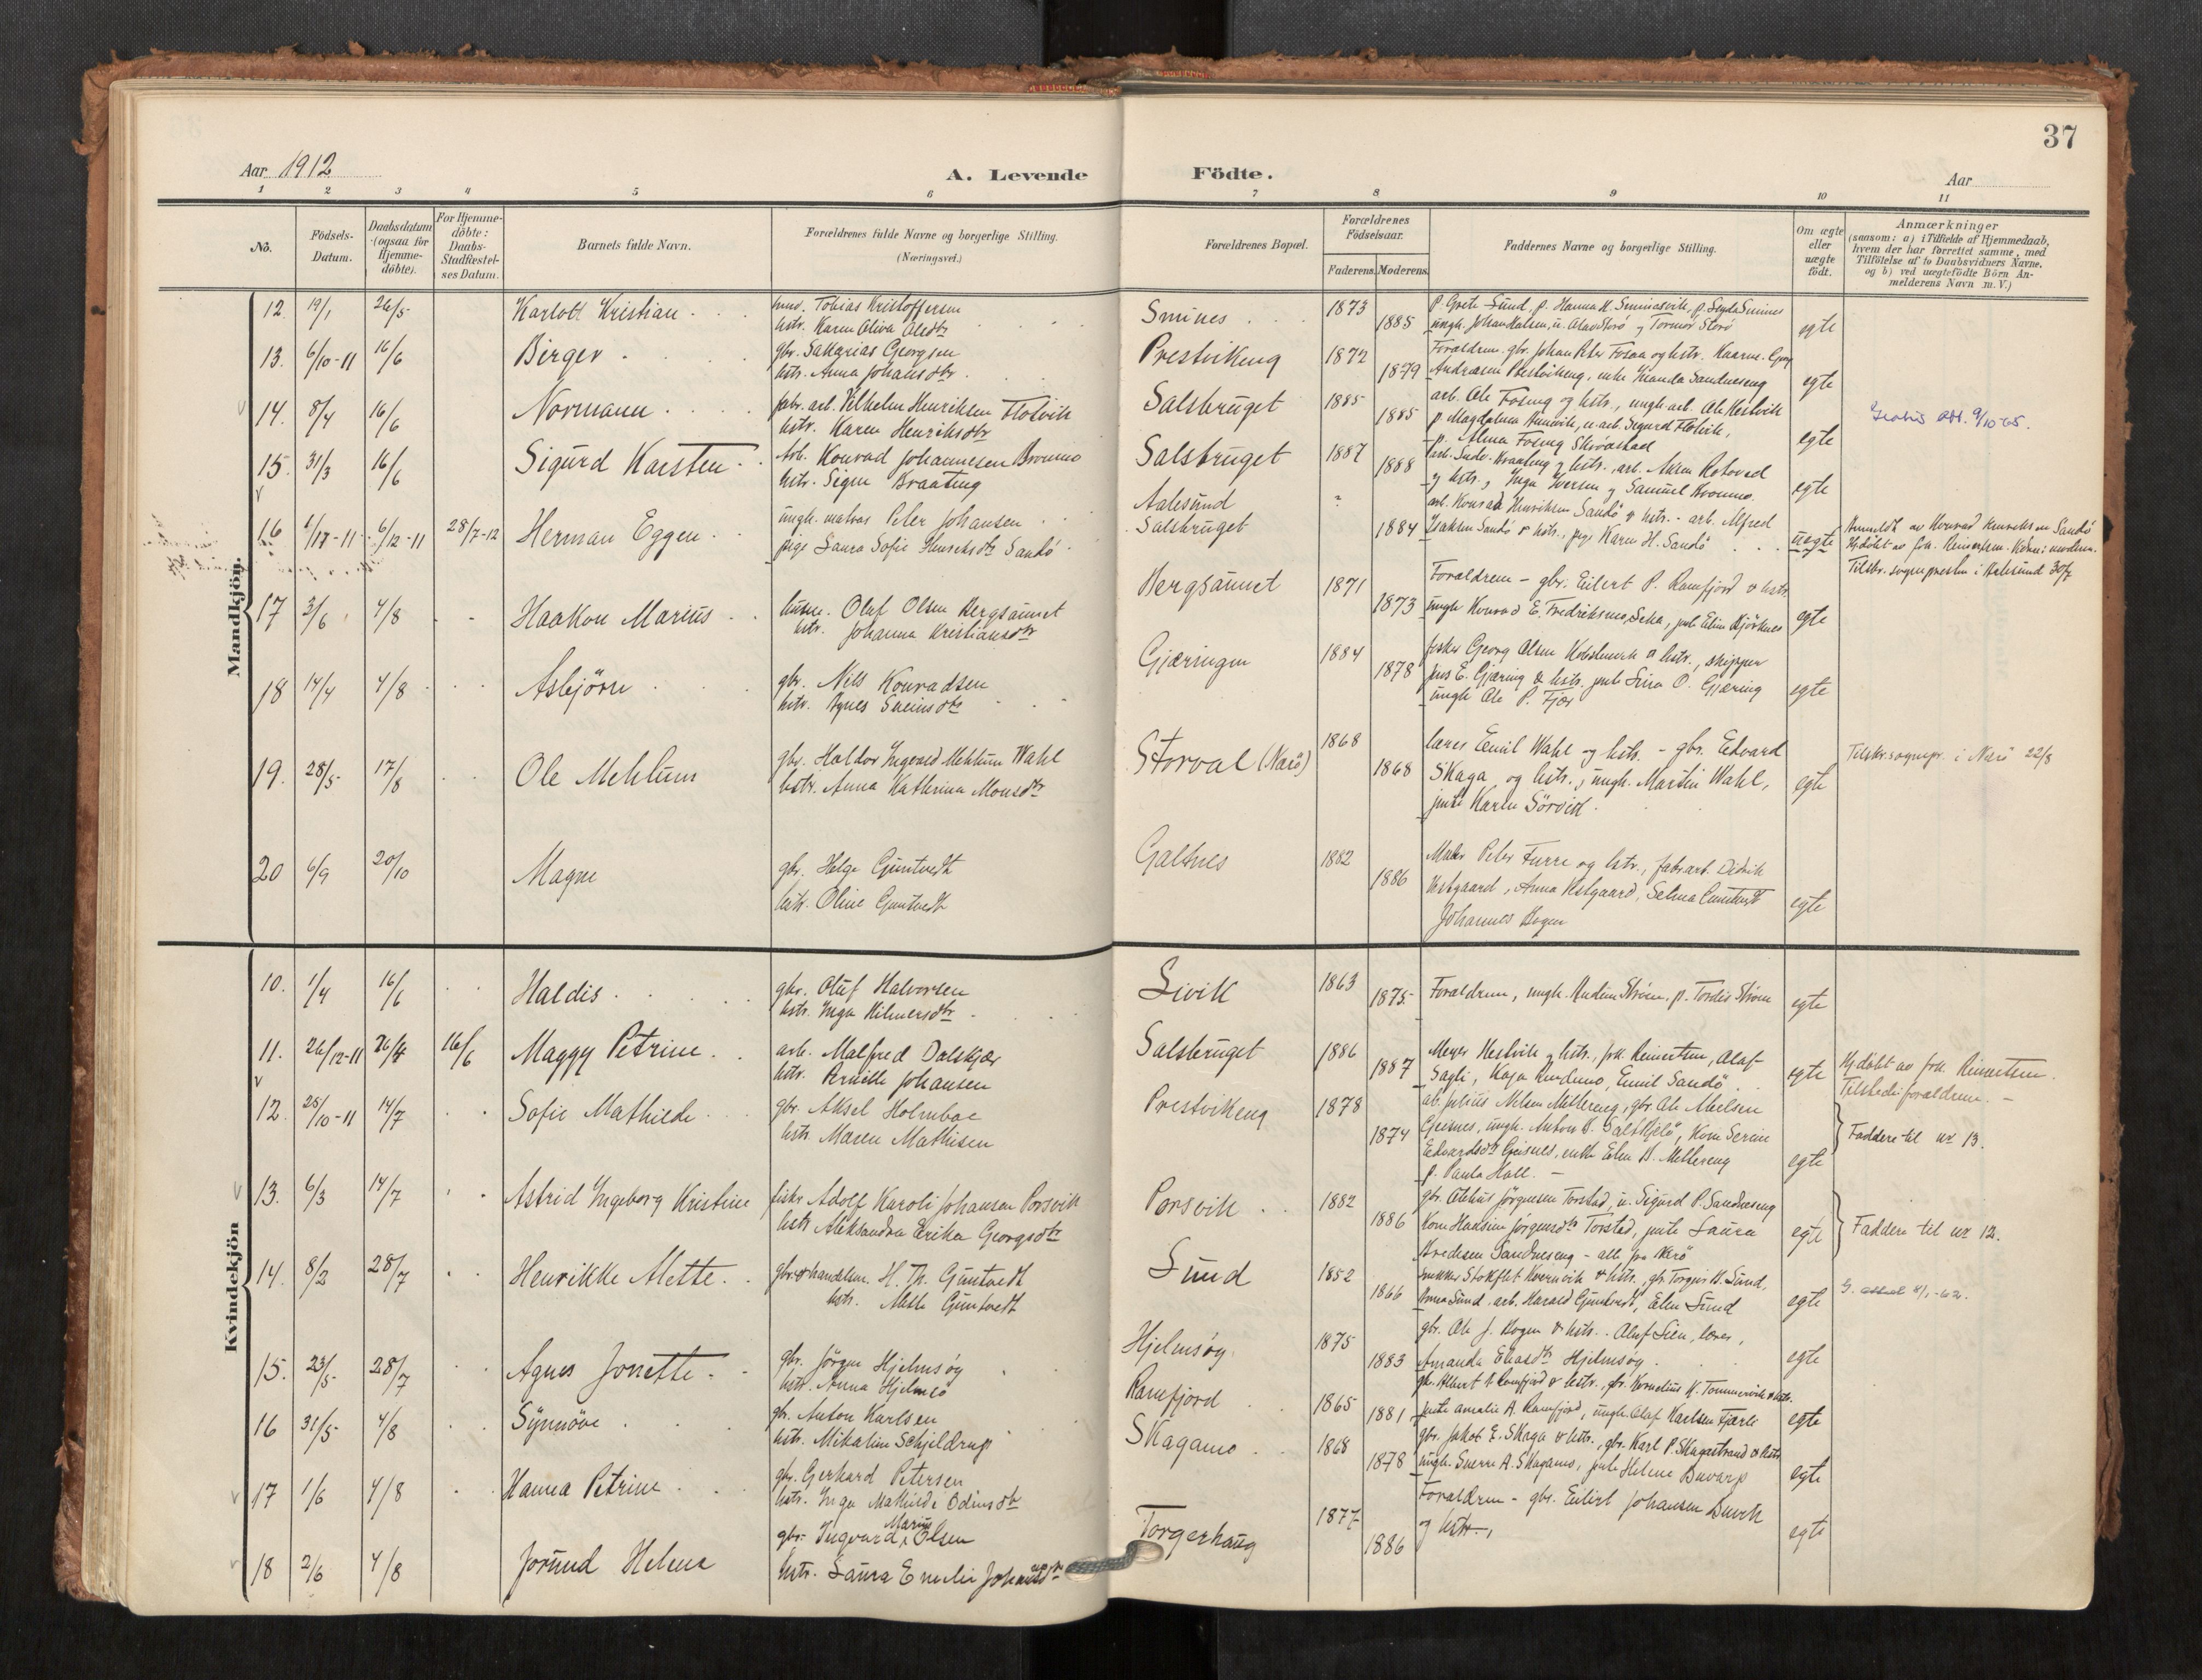 37
Aar 1912
A. Levende Födte.
Aar
1 2 3 4 5 6 7 8 9 10 11
No.
Födsels-
Datum.
Daabsdatum
(ogsaa for
Hjemme-
döbte).
For Hjemme-
döbte:
Daabs-
Stadfæstel-
ses Datum.
Barnets fulde Navn.
Forældrenes fulde Navne og borgerlige Stilling.
(Næringsvei.)
Forældrenes Bopæl.
Forældrenes
Födselsaar.
Faderens. Moderens.
Faddernes Navne og borgerlige Stilling.
Om ægte
eller
uægte
födt.
Anmærkninger
(saasom: a) i Tilfælde af Hjemmedaab,
hvem der har forrettet samme, med
Tilföielse af to Daabsvidners Navne.
og b) ved uægtefödte Börn An-
melderens Navn m. V.)
Mandkjön.
12. 19/1 26/5 Karlott Kristian
Tobias Kristoffersen
hstr. Karen Oliva Olsdtr
Smines 1873 1885
ungh. Johan Halsen, u. Olav Storö og Tormod Storö
egte
13. 6/10-11 16/6 Birger
gbr. Sakarias Georgsen
hstr. Anna Johansdtr
Prestvikeng 1872 1879
Forældrene. gbr. Johan Peter Fosaa og hstr. Kaarine Georg
Andreasen Prestvikeng, enke Handa Sandneseng
egte
14. 8/4 16/6 Normann
fabr. arb. Vilhelm Henriksen Flotvik
hstr. Karen Henriksdtr
Salsbruget 1885 1885
arb. Ole Foseng og hstr., ungk. arb. Ole Hestvik
p. Magdalena, u. arb. Sigurd Flotvik,
p. Alma Foseng
egte
att. 9/10-65.
15. 31/3 16/6 Sigurd Karsten
Arb. Konrad Johannesen Bromo
hstr. Signe Braateng
Salsbruget 1887 1888
arb. Ludv. Kraateng og hstr., arb. Anton
og hstr., Inga Iversen og Samuel
egte
16 6/12-11 28/7-12 Herman Eggen
ungk. matros Peter Johansen
pige Laura Sofie Henriksdtr Sandö
Aalesund
Salsbruget
? 1884
arb. Konrad Henriksen Sandö & hstr. - arb. Alfred
Isaksen Sandö & hstr., pige Karen H. Sandö
uegte
Anmeldt av Konrad Henriksen Sandö
Hj.döbt av frk. Reinertsen.
Tilskr. sognepresten i Aalesund 30/7
17 3/6 4/8 Haakon Marius
husm. Oluf Olsen Bergsaunet
hstr. Johanna Kristiansdtr
Bergsaunet 1871 1873
Forældrene - gbr. Eilert P. Ramfjord & hstr.
ungk Konrad E. Fredriksmo, Seka, pute Elise
egte
18 14/4 4/8 Asbjörn
gbr. Nils Konradsen
hstr. Agnes
Gjæringen 1884 1878
fisker Georg Olsen & hstr., skipper
Jens E. Gjæring & hstr. pute Lina O. Gjæring
ungk Ole P. Fjær
egte
19. 28/5 17/8 Ole Mehlum
gbr. Haldor Ingvald Mehlum Wahl
hstr. Anna Kathrina Monsdtr
Storval (Nærö) 1868 1868
lærer Emil Wahl og hstr. - gbr. Edvard
Skaga og hstr., ungk. Martin Wahl,
pute Karen Sörvik
egte
Tilskr. sognepr. i Nærö 22/8
20 6/9 20/10 Magne
gbr. Helge Guntvedt
hstr. Oline Guntvedt
Galtnes 1882 1886
Maler Peter Furre og hstr., fabr.arb. Didrik
Vestgaard, Anna Vestgaard, Selma Guntvedt
Johannes Hogen
egte
Kvindekjön
10. 1/4 16/6 Haldis
gbr. Oluf Halvorsen
hstr. Inga Hilmersdtr
Livik 1863 1875
Forældrene, ungk. Ström, p. Tordis Ström
egte
11. 26/12-11 26/4 16/6 Maggy Petrine
arb. Malfred Dalskjær
hstr. Pernille Johansen
Salsbruget 1886 1887
Meyer Hestvik og hstr., frk Reinertsen, Olaf
Sagli, Kaja, Emil Sandö
egte
Hj.döbt av frk. Reinertsen.
Tilstede: forældrene. -
12. 25/10-11 14/7 Sofie Mathilde
gbr. Aksel Holmboe
hstr. Maren Mathisen
Prestvikeng 1878 1874
arb. Julius Nilsen Mellereng, gbr. Ole Abelsen
Geisnes, ungk. Anton, Kone Serine
Edvardsdtr Geisnes, enke Elen B. Mellereng
p. Paula Hall. -
egte
Faddere til nr 13.
13. 6/3 14/7 Astrid Ingeborg Kristine
fisker Adolf Karoli Johansen Porsvik
hstr Aleksandra Erika Georgsdtr
Porsvik 1882 1886
gbr. Jörgensen Torstad, u. Sigurd P. Sandneseng
Kone Hansine Jörgensdtr Torstad, pute Laura
Sandneseng - alle fra Nærö
egte
Faddere til nr 12.
14. 8/2 28/7 Henrikke Mette
gbr & handelsm. H. Th. Guntvedt
hstr. Mette Guntvedt
Sund 1852 1866
snekker Stokflet Kvernvik & hstr., gbr. Torgeir B. Sund,
Anna Sund, arb. Harald Guntvedt, Elen Sund
egte
15. 23/5 28/7 Agnes Jonette
gbr. Jörgen Hjelmsøy
hstr. Anna Hjelmsö
Hjelmsøy 1875 1883
gbr. Ole J. Hogen & hstr. Oluf Lien, lærer,
Amanda Eliasdtr Hjelmsøy
egte
16 31/5 4/8 Synnöve
gbr. Anton Karlsen
hstr. Mikaline Schjeldrup
Ramfjord 1865 1881
gbr. Albert Ramfjord & hstr., gbr. Kornelius K. Tommervik & hstr.
pute Amalie A. Ramfjord, ungk. Olaf Karlsen Fjærli
egte
17 1/6 4/8 Hanna Petrine
gbr. Gerhard Petersen
hstr. Inga Mathilde Odinsdtr
Skagamo 1868 1878
gbr. Jakob E. Skaga & hstr., gbr. Karl P. Skagastrand & hstr
ungk. Sverre A. Skagamo, pute Helene Buvarp
egte
18 2/6 4/8 Jorund Helene
gbr. Ingvard Marius Olsen
hstr. Laura Emelie
Torgerhaug 1877 1886
Forældrene - gbr. Eilert Johansen
og hstr.,
egte